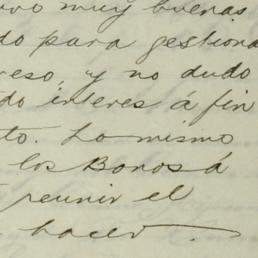 vo muy buenas
do para gestiona
reso, y no dudo
do interes á fin
to. Lo mismo
los Bonos á
reunir el
hacer.